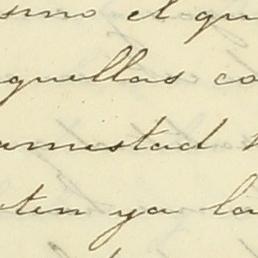 sino el qu
aquellas co
amistad
ten ya la